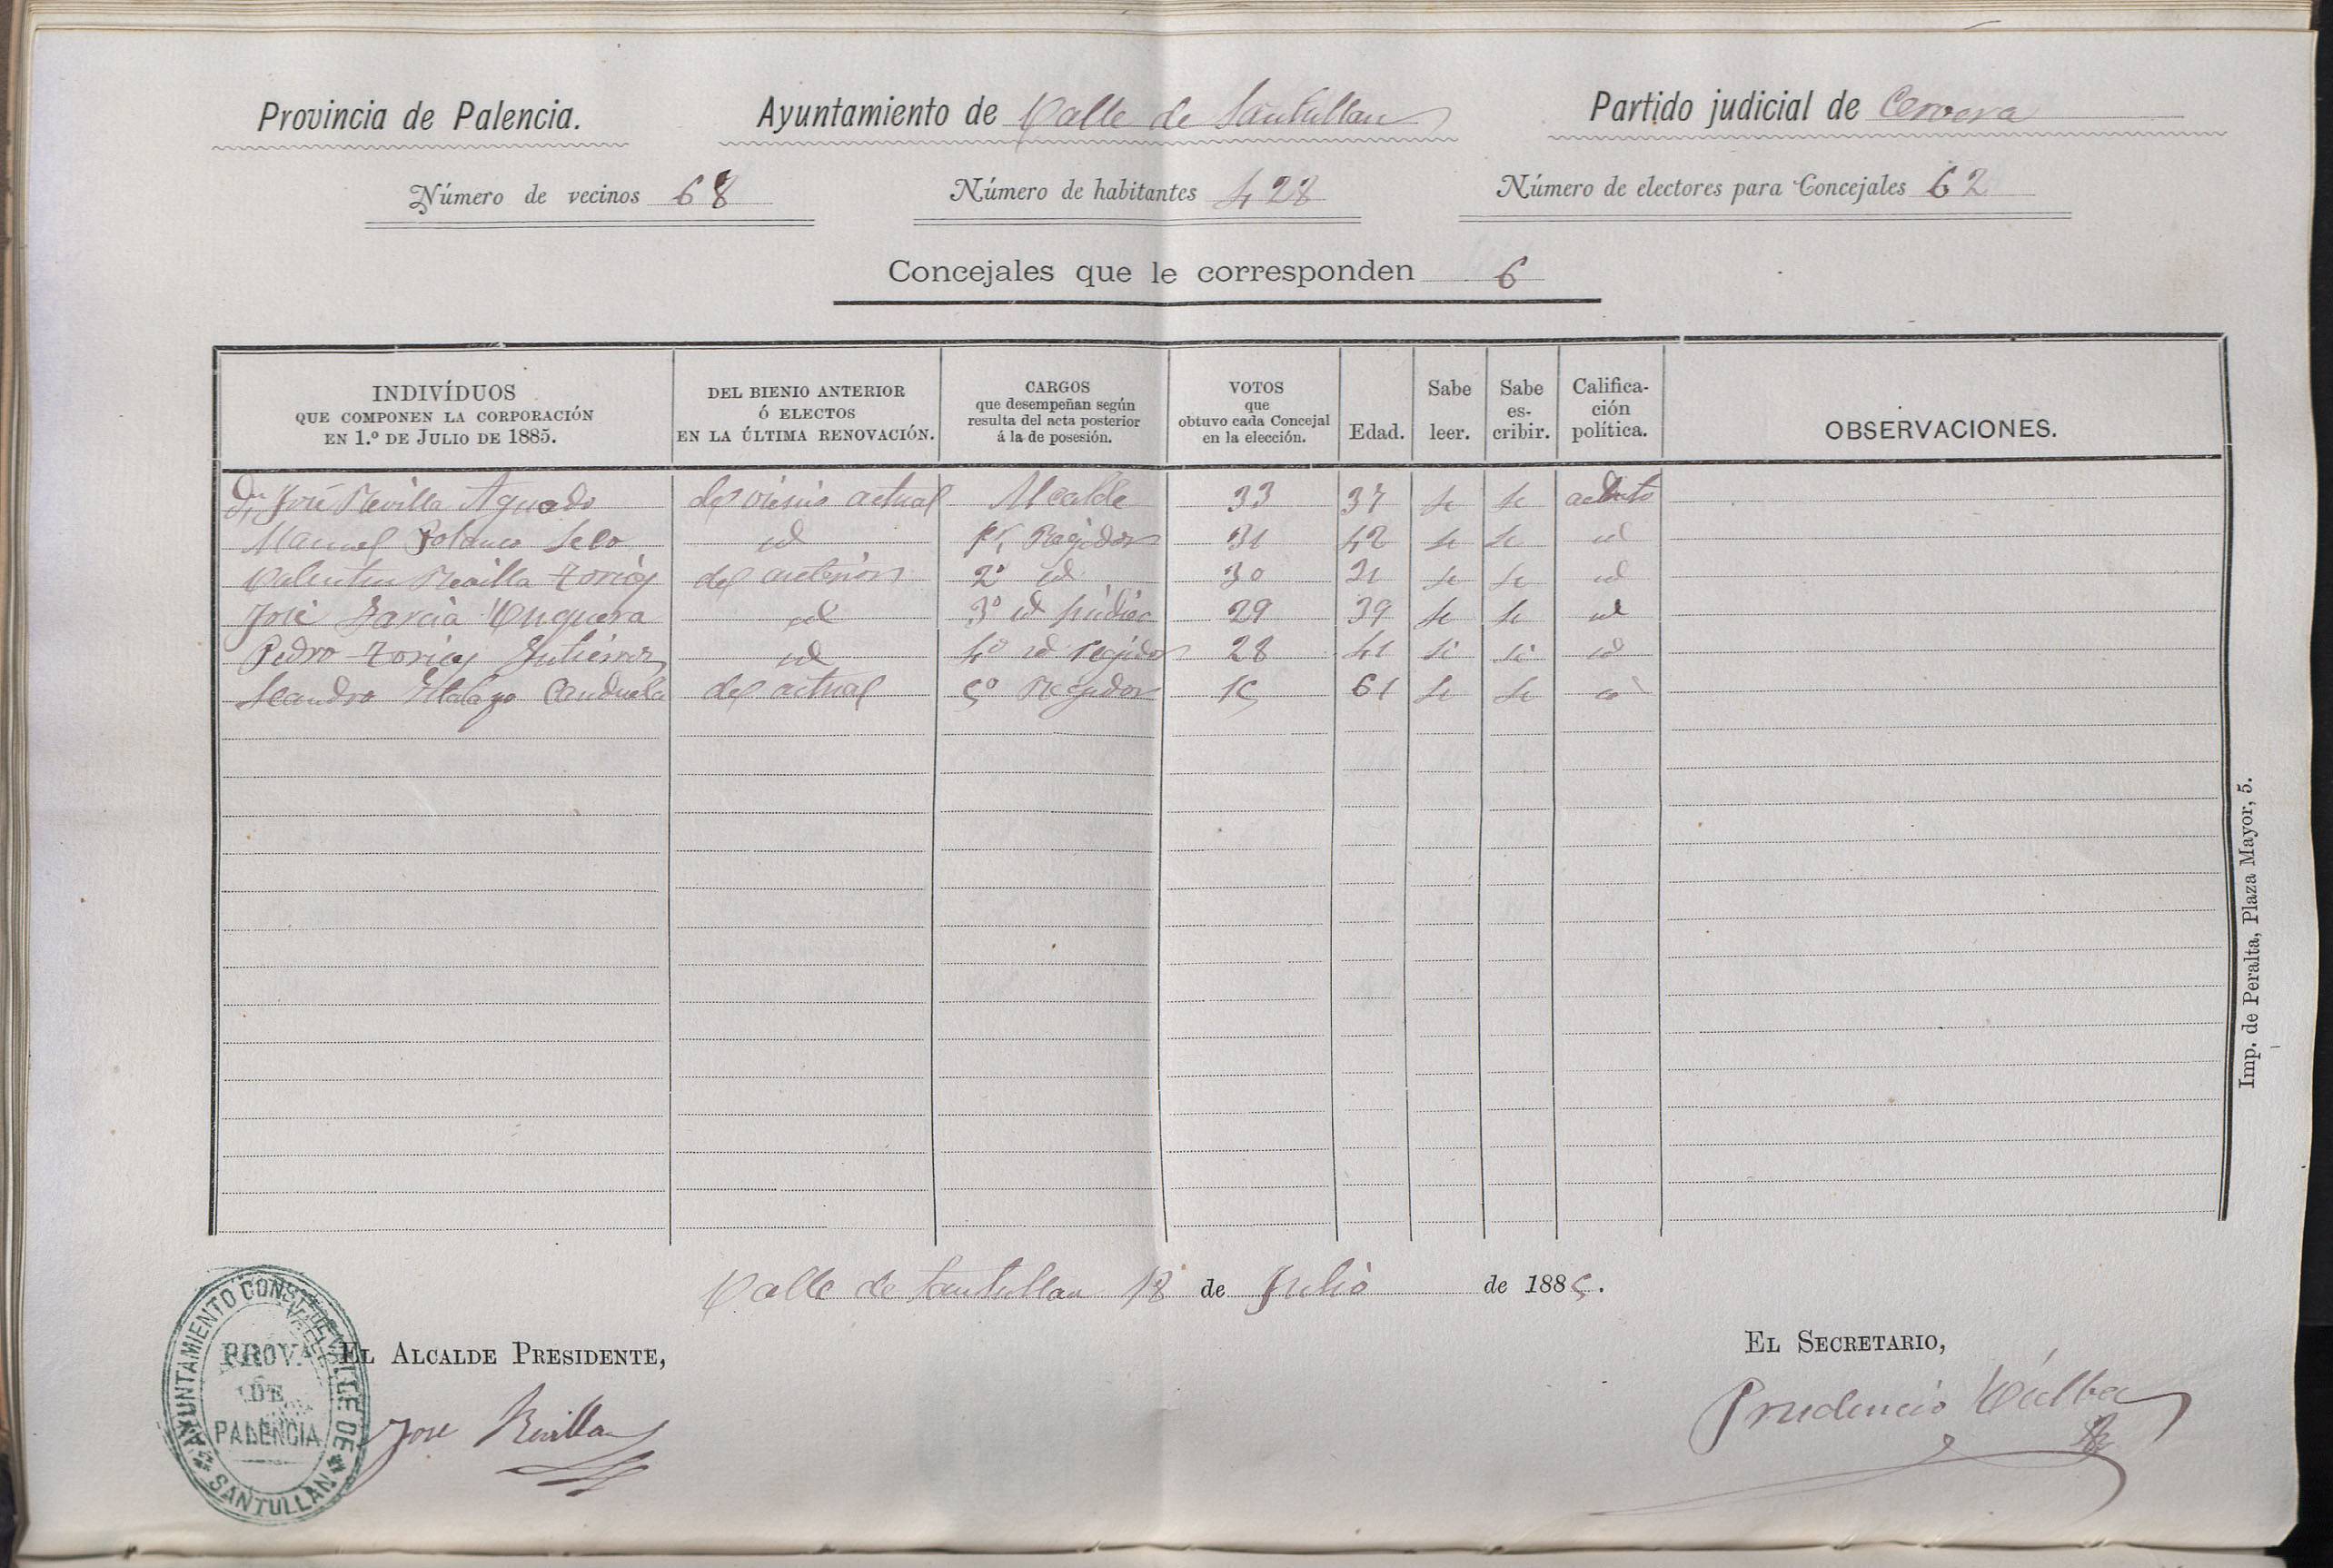 Provincia de Palencia. Ayuntamiento de Valle de Santullan Partido judicial de Cervera
Número de vecinos 68 Número de habitantes 428 Número de electores para Concejales 62
Concejales que le corresponden 6
INDIVÍDUOS QUE COMPONEN LA CORPORACIÓN EN 1.º DE JULIO DE 1885. DEL BIENIO ANTERIOR Ó ELECTOS EN LA ÚLTIMA RENOVACIÓN. CARGOS que desempeñan según resulta del acta posterior á la de posesión. VOTOS que obtuvo cada Concejal en la elección. Edad. Sabe leer. Sabe es-cribir. Califica-ción política. OBSERVACIONES.
Dn José Revilla Aguado del vienio actual Alcalde 33 37 si si adicto
Manuel Polanco id 1r Regidor 31 42 si si id
Valentin Revilla Torices del anterior 2º id 30 31 si si id
José Garcia 3º id sindico 29 39 si si id
Pedro Torices Gutierrez id 4º id regidor 28 41 si si id
Leandro Canduela del actual 5º Regidor 15 61 si si id
Valle de Santullan 18 de Julio de 1885.
EL ALCALDE PRESIDENTE, EL SECRETARIO,
Jose Revilla Prudencio
AYUNTAMIENTO CONST. DE VALLE DE SANTULLAN
PROV.A
DE
PALENCIA
Imp. de Peralta, Plaza Mayor, 5.